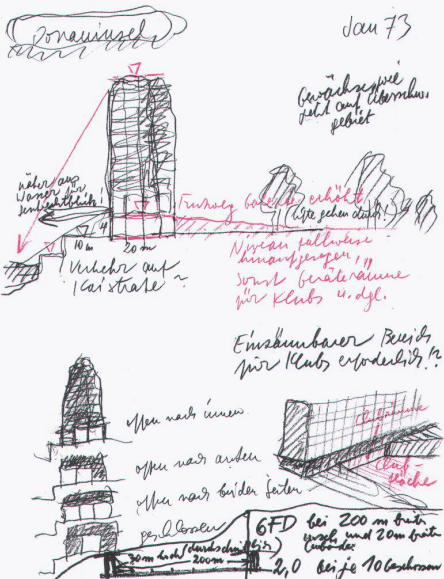 Donauinsel
Jan 73
Gewächse wie
jetzt auf Überschw.
gebiet
näher ans
Wasser für
Fussweg Galerie erhöht
Leute gehen durch!
4
10 m
20 m
Niveau fallweise
hinaufgezogen,
sonst Geräteräume
für Klubs u. dgl.
Verkehr auf
Kaistraße?
Einsäumbarer Bereich
für Klubs erforderlich!?
offen nach innen
offen nach außen
offen nach beiden Seiten
geschlossen
Clubräume
Club
fläche
GFD bei 200 m breiter
Insel und 20 m breiter
30 m hoch (durchschnittlich)
200 m
2,0 bei je 10 Geschossen